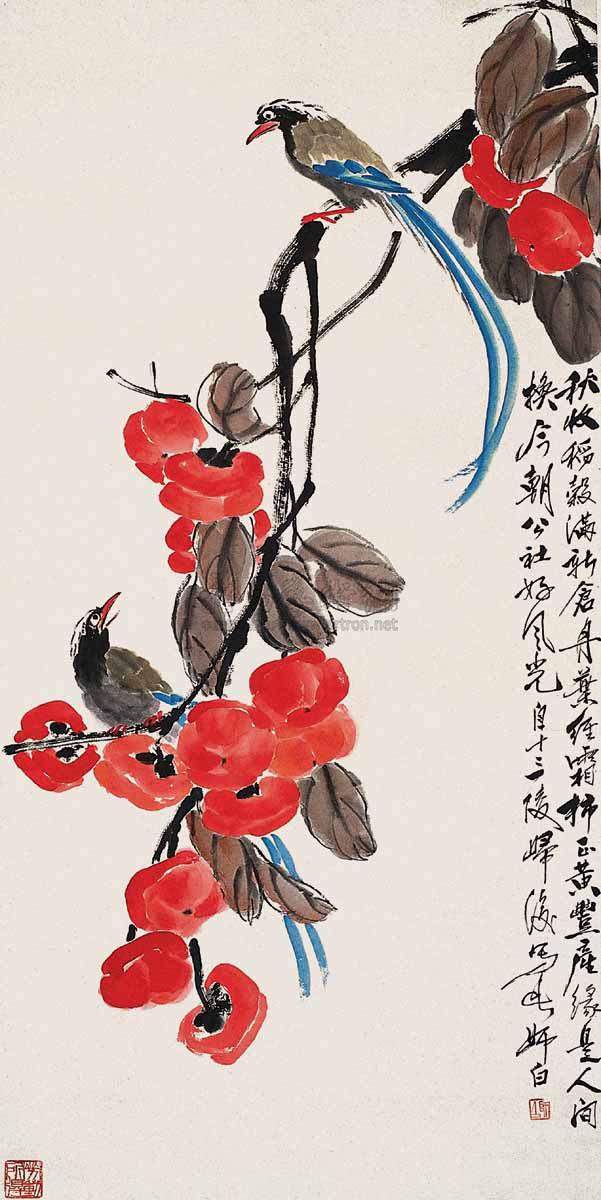 秋收稻穀滿新倉丹葉經霜柿正黃豐產緣是人間
換今朝公社好風光自十三陵歸後寫此師白
勞動所得